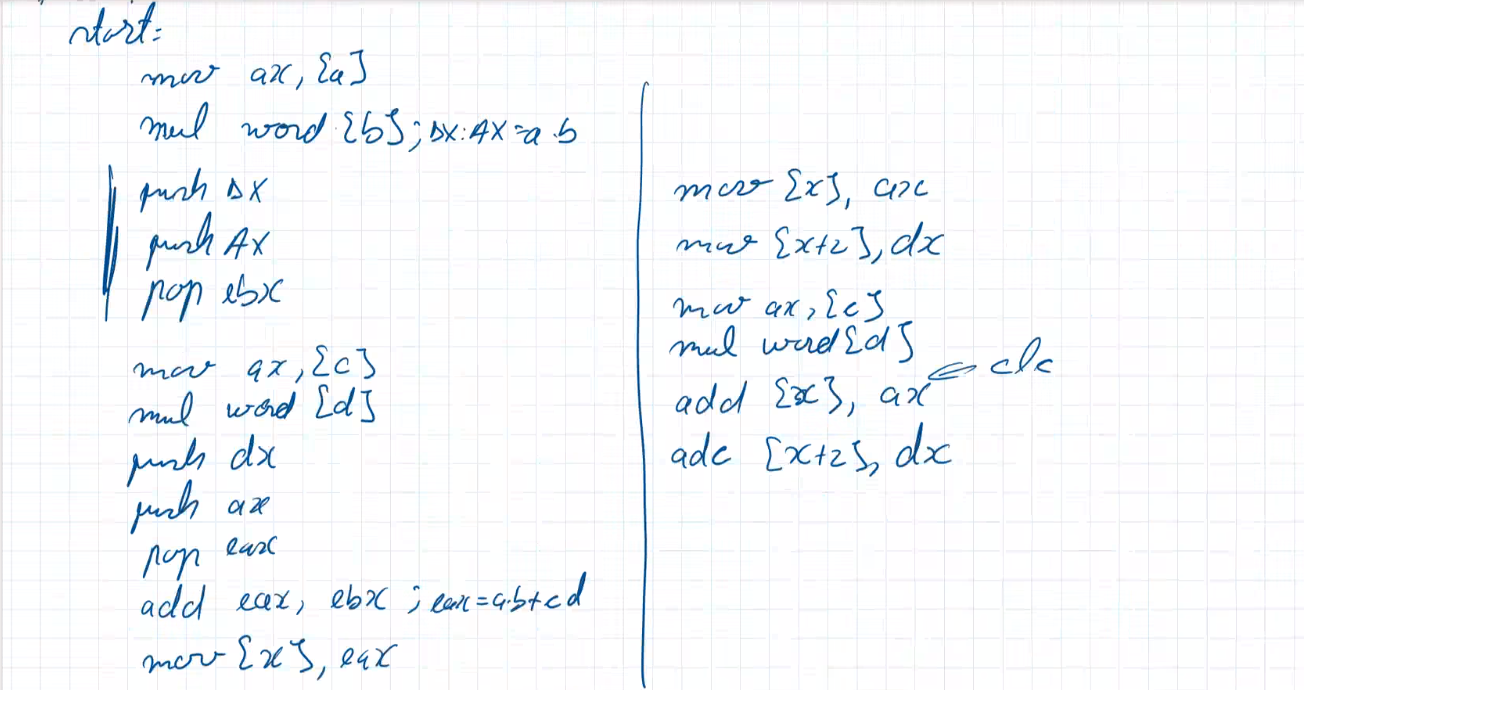 start:
mov ax, [a]
mul word [b] ; DX:AX = a.b
push DX
push AX
pop ebx
mov ax, [c]
mul word [d]
push dx
push ax
pop eax
add eax, ebx ; eax = a.b+cd
mov [x], eax
mov [x], ax
mov [x+2], dx
mov ax, [c]
mul word [d]
add [x], ax ⇐ clc
adc [x+2], dx